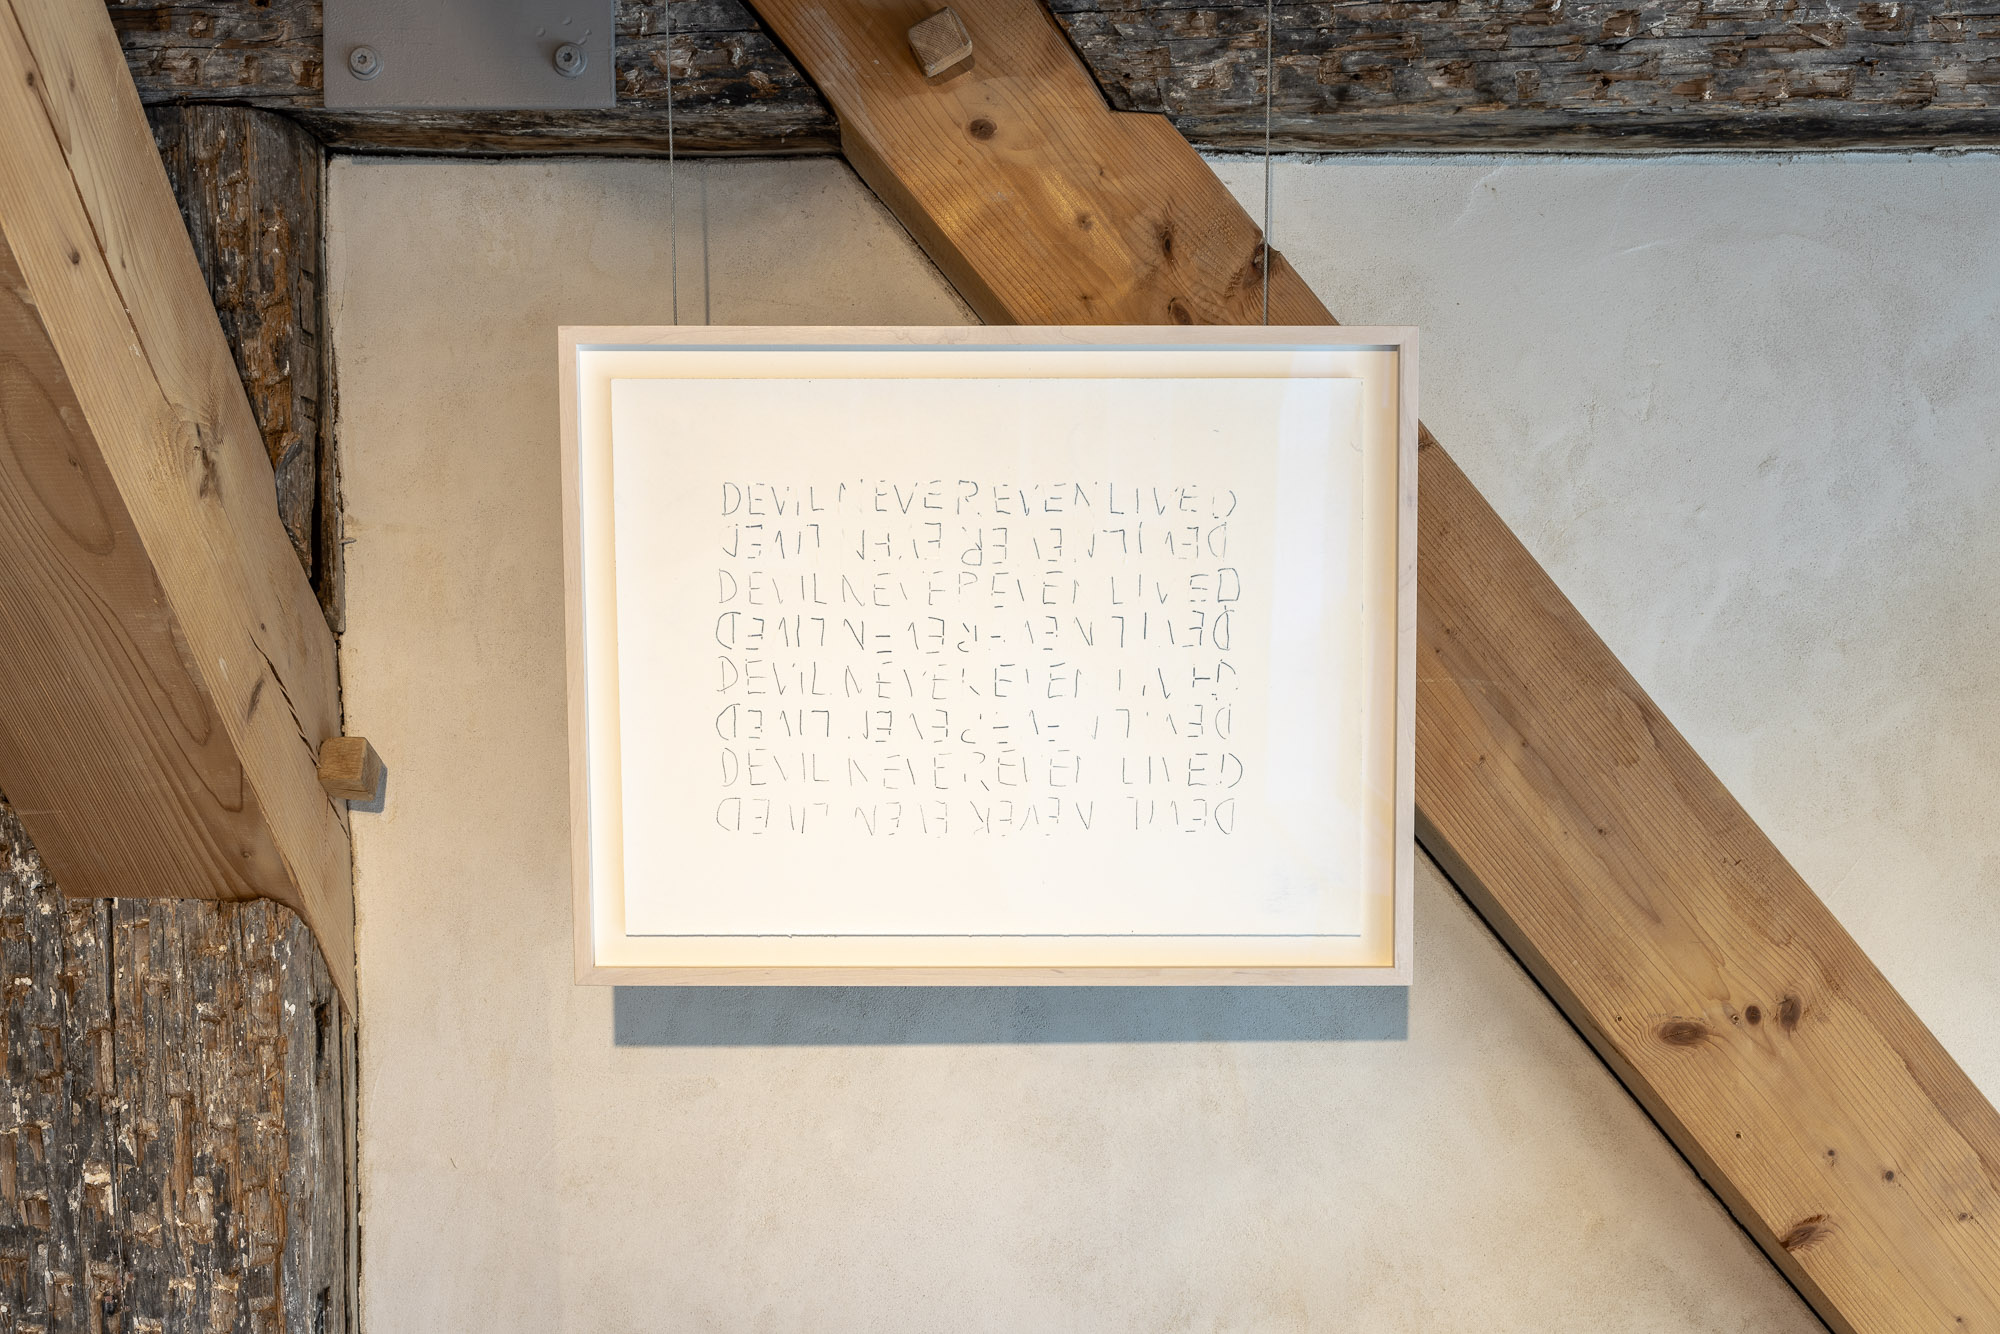 DEVIL NEVER EVEN LIVED
DEVIL NEVER EVEN LIVED
DEVIL NEVER EVEN LIVED
DEVIL NEVER EVEN LIVED
DEVIL NEVER EVEN LIVED
DEVIL NEVER EVEN LIVED
DEVIL NEVER EVEN LIVED
DEVIL NEVER EVEN LIVED